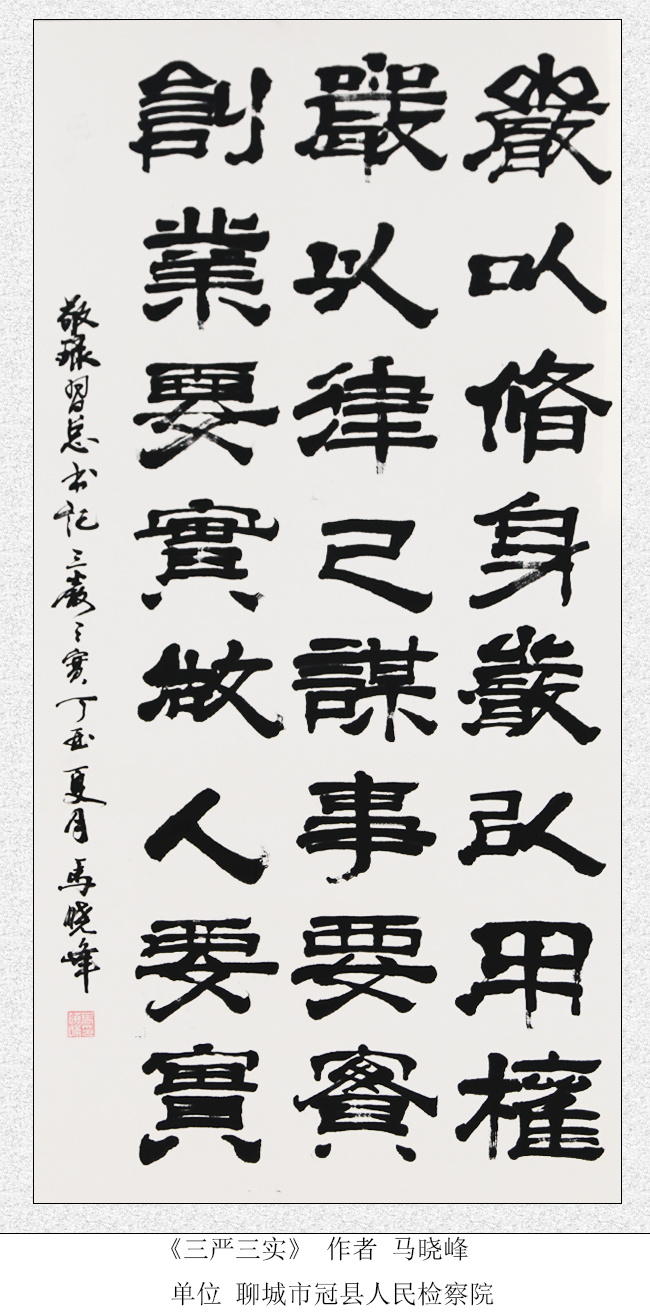 嚴以脩身嚴以用權
嚴以律己謀事要實
創業要實做人要實
敬録習总书记三嚴三實丁酉夏月馬晓峰
《三严三实》 作者 马晓峰
单位 聊城市冠县人民检察院